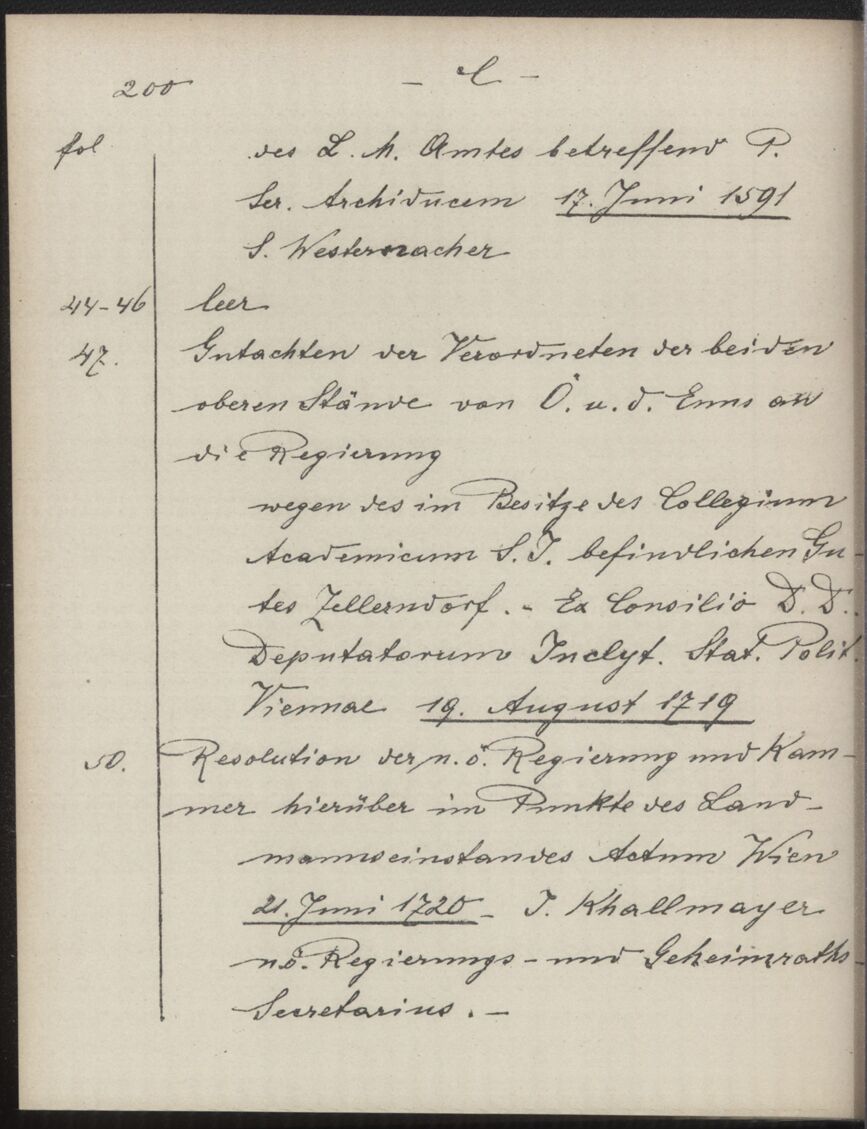 200 - L -
fol
des L. M. Amtes betreffend P.
Ser. Archiducem 17. Juni 1591
S. Westernacher
44-46 leer
47. Gutachten der Verordneten der beiden
oberen Stände von Ö. u. d. Enns an
die Regierung
wegen des im Besitze des Collegium
Academicum S. J. befindlichen Gu-
tes Zellerndorf. - Ex Consilio D. D.
Deputatorum Inclyt. Stat. Polit.
Viennae 19. August 1719
50. Resolution der n. ö. Regierung und Kam-
mer hierüber im Punkte des Land-
mannseinstandes Actum Wien
21. Juni 1720 - J. Khallmayer
n.ö. Regierungs- und Geheimraths-
Secretarius. -